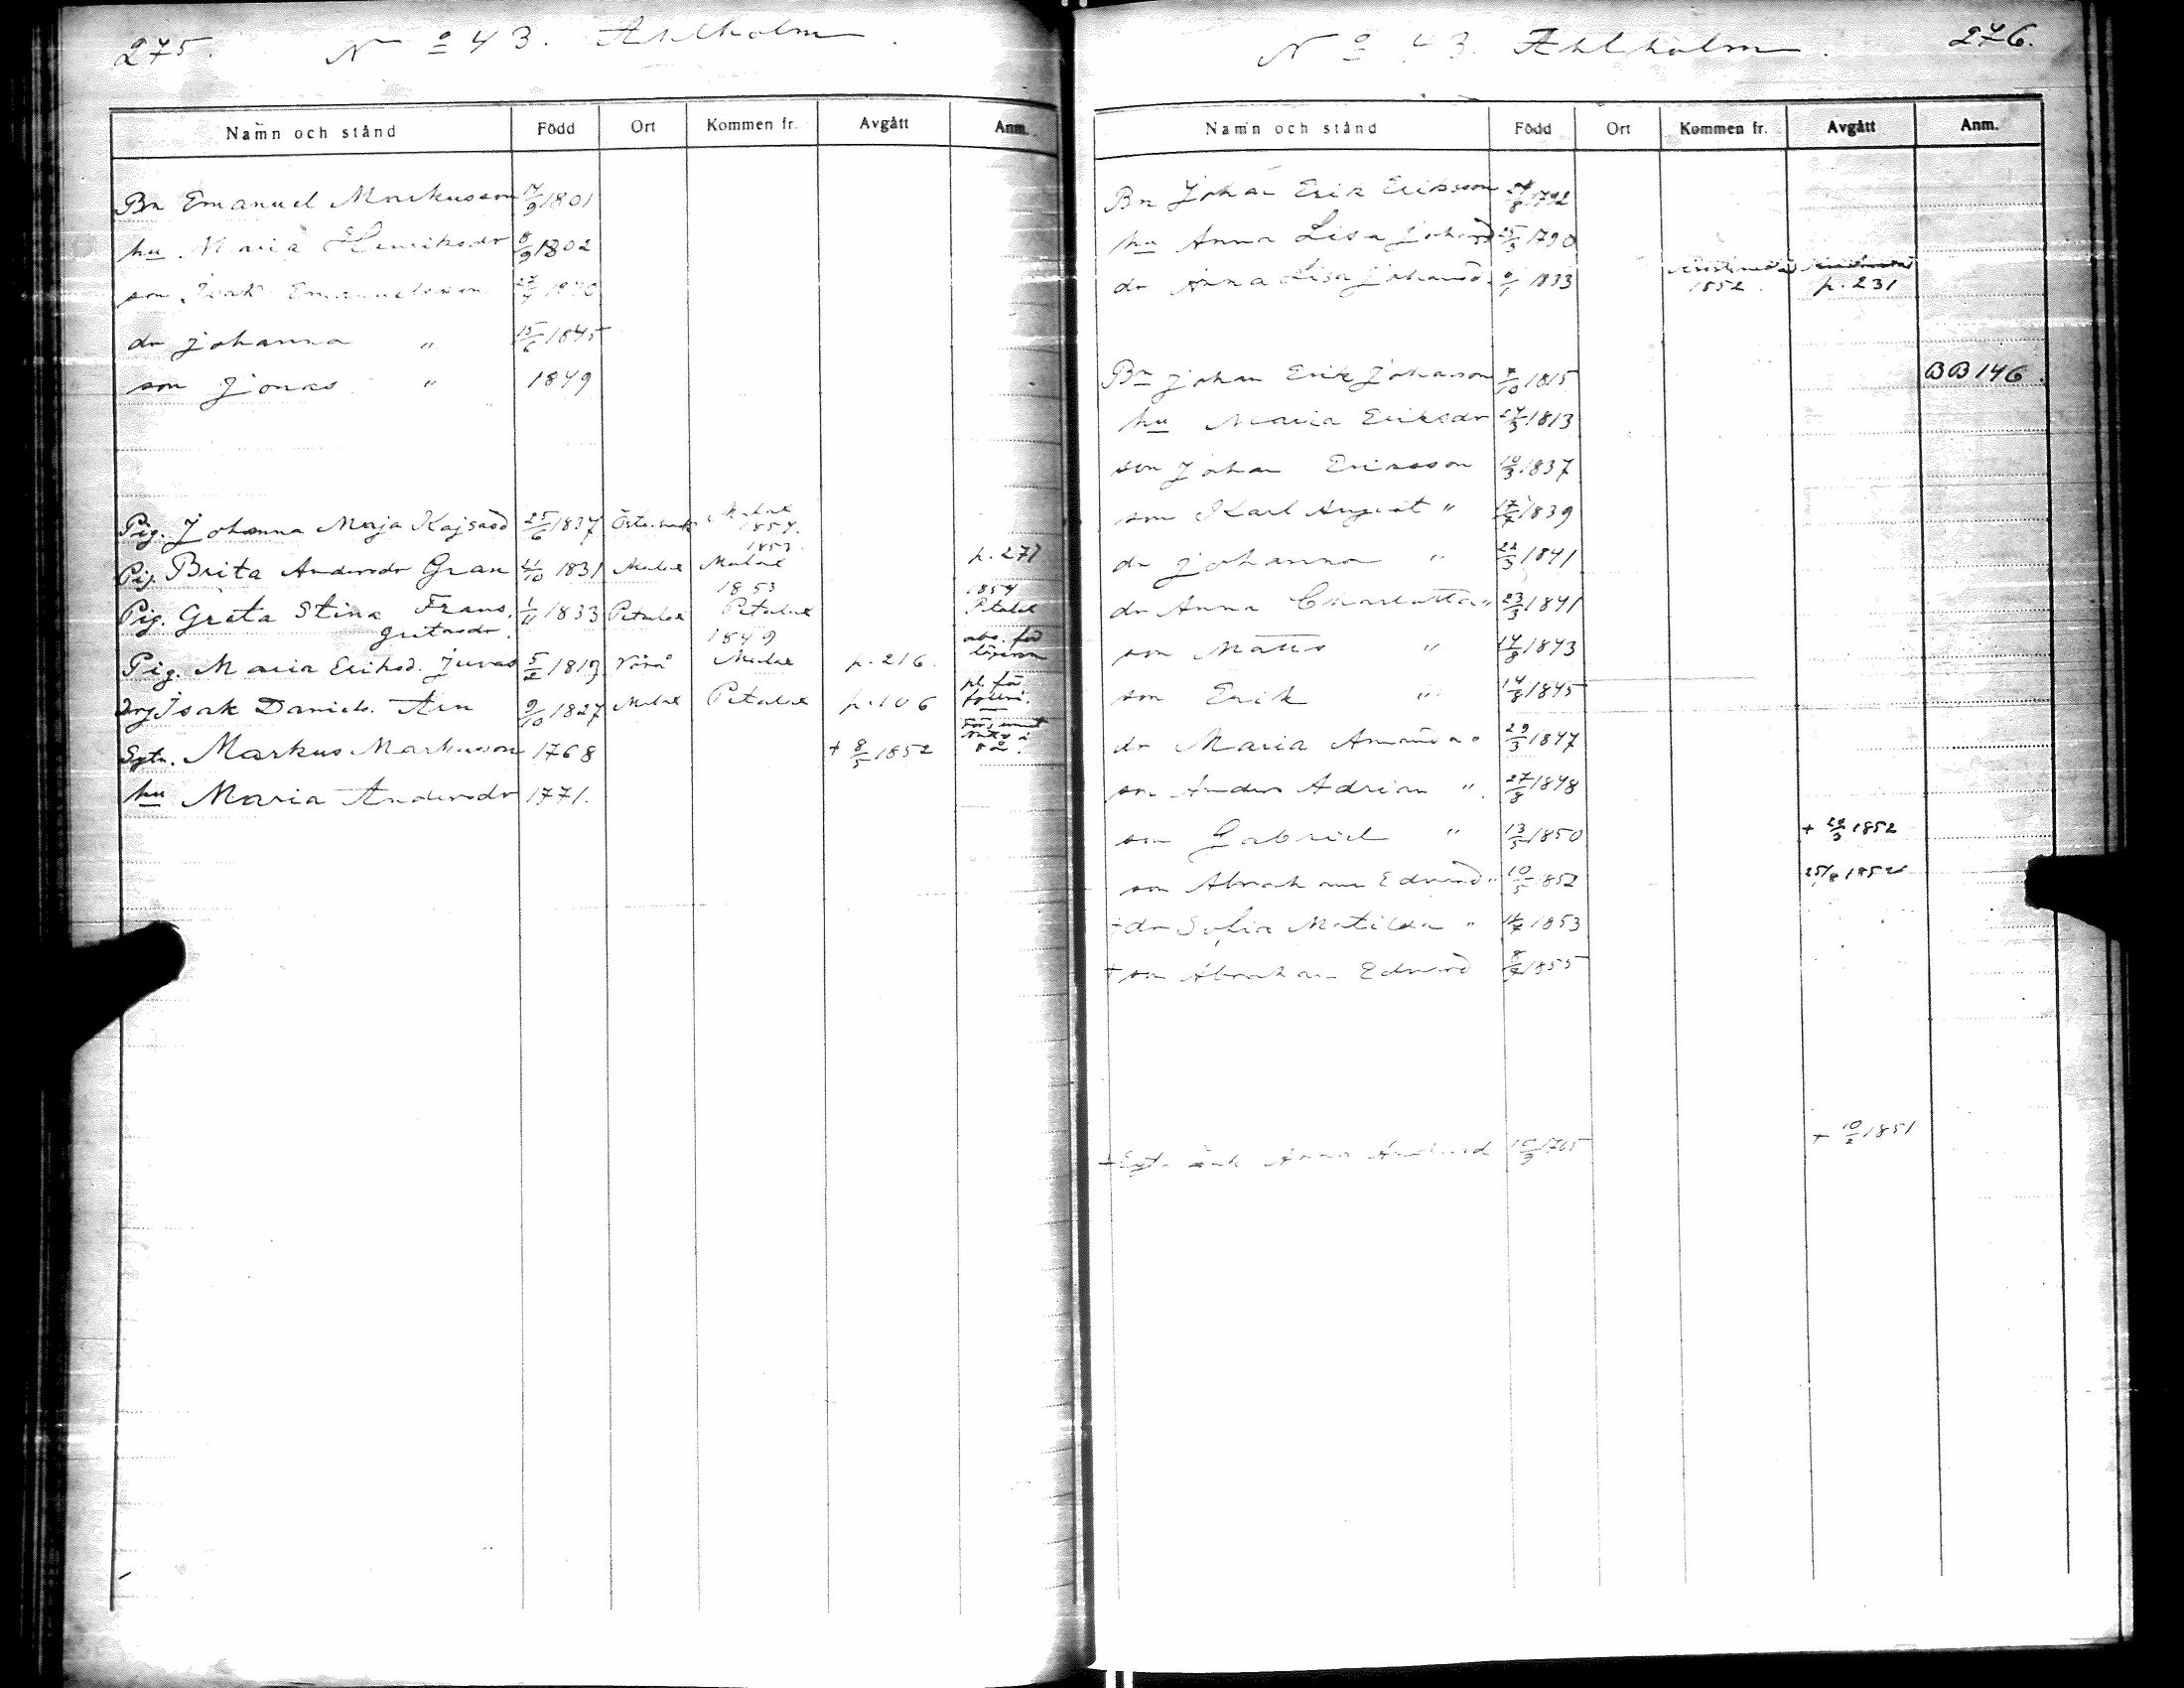 275. No 43. Ahlholm.
Namn och stånd Född Ort Kommen fr. Avgått Anm.
Bn Emanuel Markusson 17/9 1801
hu Maria Henriksdr 8/9 1802
son Isak Emanuelsson 27/7 1840
dr Johanna " 15/6 1845
son Jonas " 1849
Pig. Johanna Maja Kajsasd 25/6 1837 Malax 1854.
Pig. Brita Andersdr Gran 4/10 1831 Malax 1853. Malax p. 277
Pig. Greta Stina Frans. 1/11 1833 Petalax 1853 Petalax 1854 Petalax
gretasdr.
Pig. Maria Eriksd. Juvas 5/2 1819 Vörå 1849 Malax p. 216. abs. för
Drg Isak Daniels. Arn 9/10 1827 Malax Petalax p. 106
Sytn. Markus Markusson 1768 + 8/5 1852
hu Maria Andersdr 1771.
No 43. Ahlholm. 276.
Namn och stånd Född Ort Kommen fr. Avgått Anm.
Bn Johan Erik Eriksson 1792
hu Anna Lisa Johansd 25/3 1790
dr Anna Lisa Johansd. 1833 Kristinestad 1852. p. 231
Bn Johan Erik Johansson 1815 BB 146.
hu Maria Eriksdr 27/3 1813
son Johan Eriksson 10/3 1837
son Karl August " 1839
dr Johanna " 23/3 1841
dr Anna Charlotta " 23/3 1841
son Matts " 14/8 1843
son Erik " 14/8 1845
dr Maria Amanda " 29/3 1847
son Anders Adrian " 27/8 1848
son Gabriel " 13/5 1850 + 1852
son Abraham Edvard " 10/5 1852 25/8 1852
+ dr Sofia Matilda " 1853
+ son Abraham Edvard 1855
+ Sytn. enk Anna 10/3 1765 + 10/2 1851